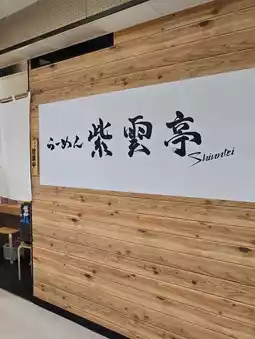 らーめん 紫雲亭
Shiuntei
営業中